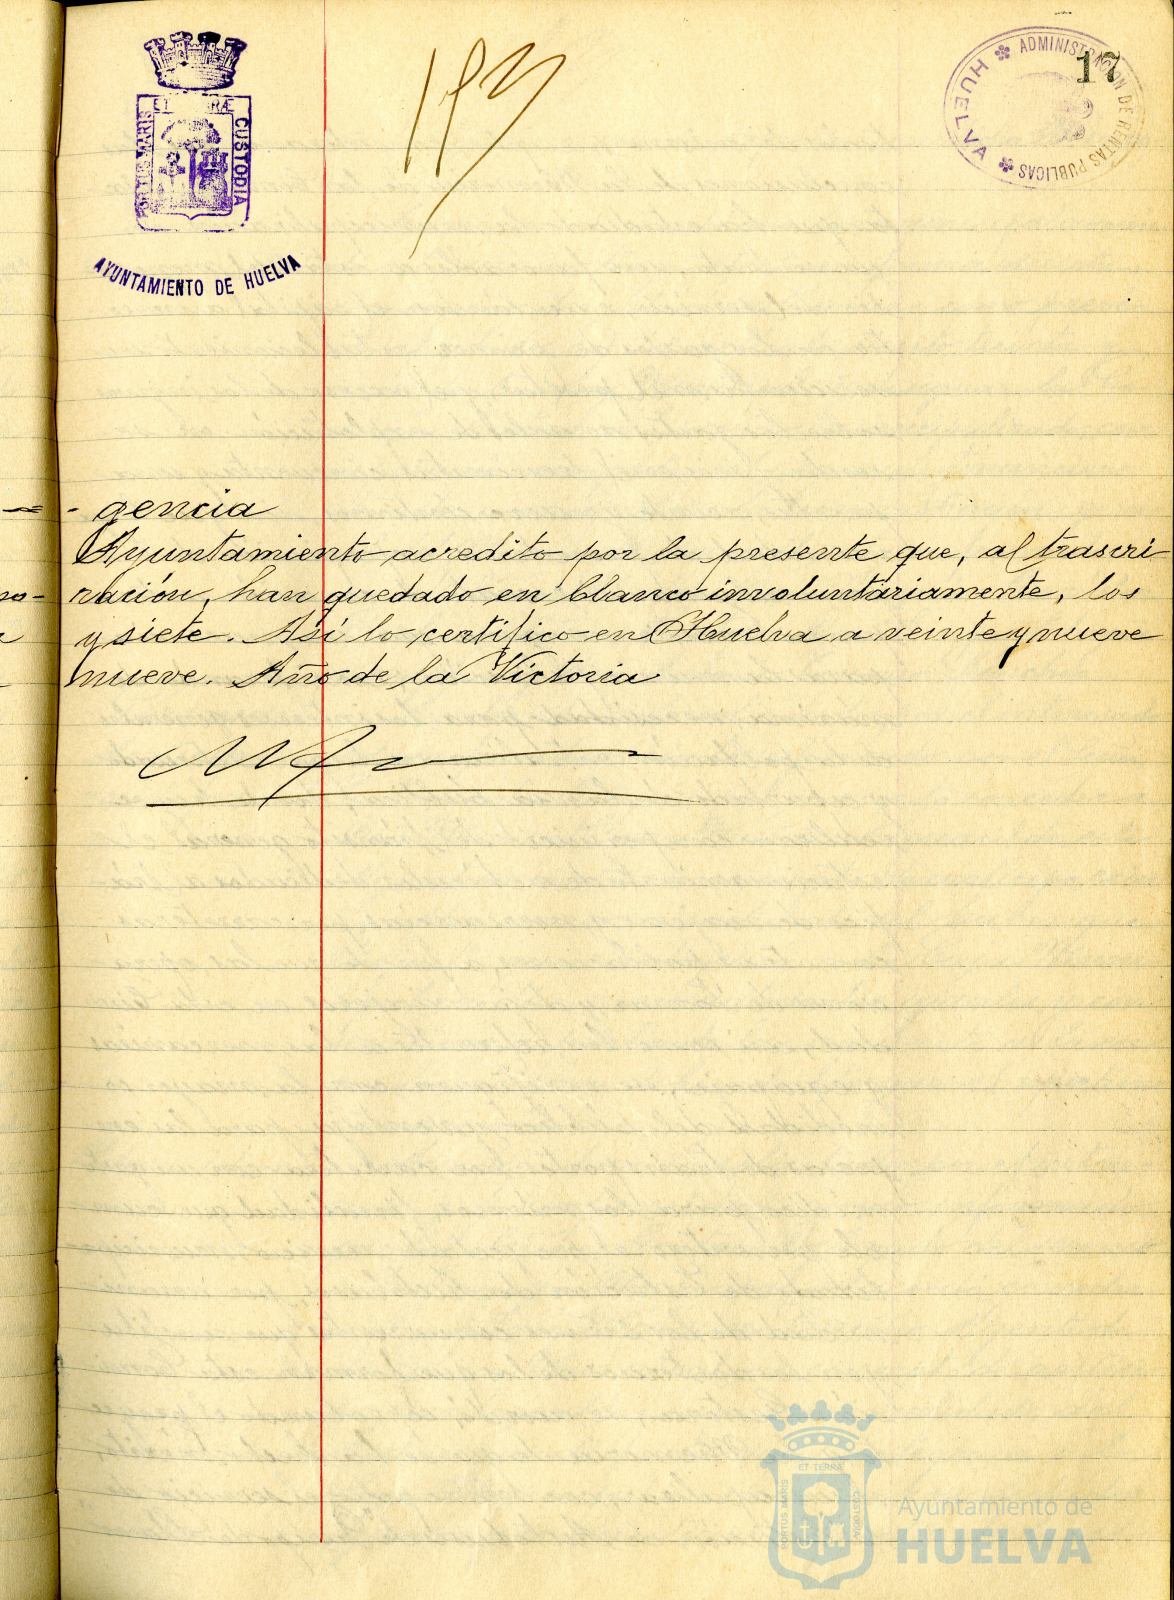 ET TERRÆ
PORTUS MARIS
CUSTODIA
AYUNTAMIENTO DE HUELVA
ADMINISTRACION DE RENTAS PUBLICAS
HUELVA
17
- gencia
Ayuntamiento acredito por la presente que, al trascri-
ración, han quedado en blanco involuntariamente, los
y siete. Así lo certifico en Huelva a veinte y nueve
nueve. Año de la Victoria
ET TERRA
PORTUS MARIS
CUSTODIA
Ayuntamiento de
HUELVA